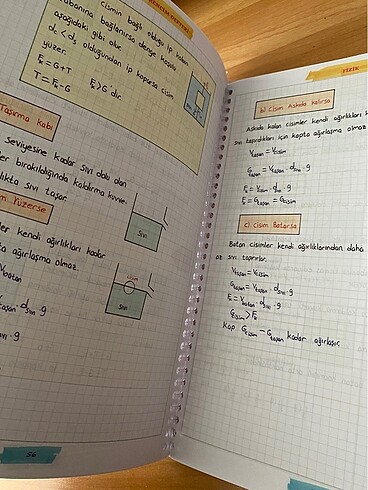 cismin bağlı olduğu ip kabın
tabanına bağlanırsa denge koşulu
aşağıdaki gibi olur.
dc < ds olduğundan ip koparsa cisim
yüzer.
Fk = G+T
T = Fk-G
Fk > G dir.
Taşırma kabı
seviyesine kadar sıvı dolu olan
bırakıldığında kaldırma kuvve
sıvı taşar.
Yüzerse
kendi ağırlıkları kadar
ağırlaşma olmaz.
Vbatan
dsıvı . g
sıvı
cisim
sıvı
56
FİZİK
b) Cisim Askıda Kalırsa
Askıda kalan cisimler kendi ağırlıkları
sıvı taşırdıkları için kapta ağırlaşma olmaz
Vtaşan = Vcisim
Gtaşan = Vtaşan . dsıvı . g
Fk = Vcisim . dsıvı . g
Fk = Gtaşan = Gcisim
c) Cisim Batarsa
Batan cisimler kendi ağırlıklarından daha
az sıvı taşırırlar.
Vtaşan = Vcisim
Gtaşan = Vtaşan . dsıvı . g
Fk = Vbatan . dsıvı . g
Gcisim > Fk
Kap Gcisim - Gtaşan kadar ağırlaşır.